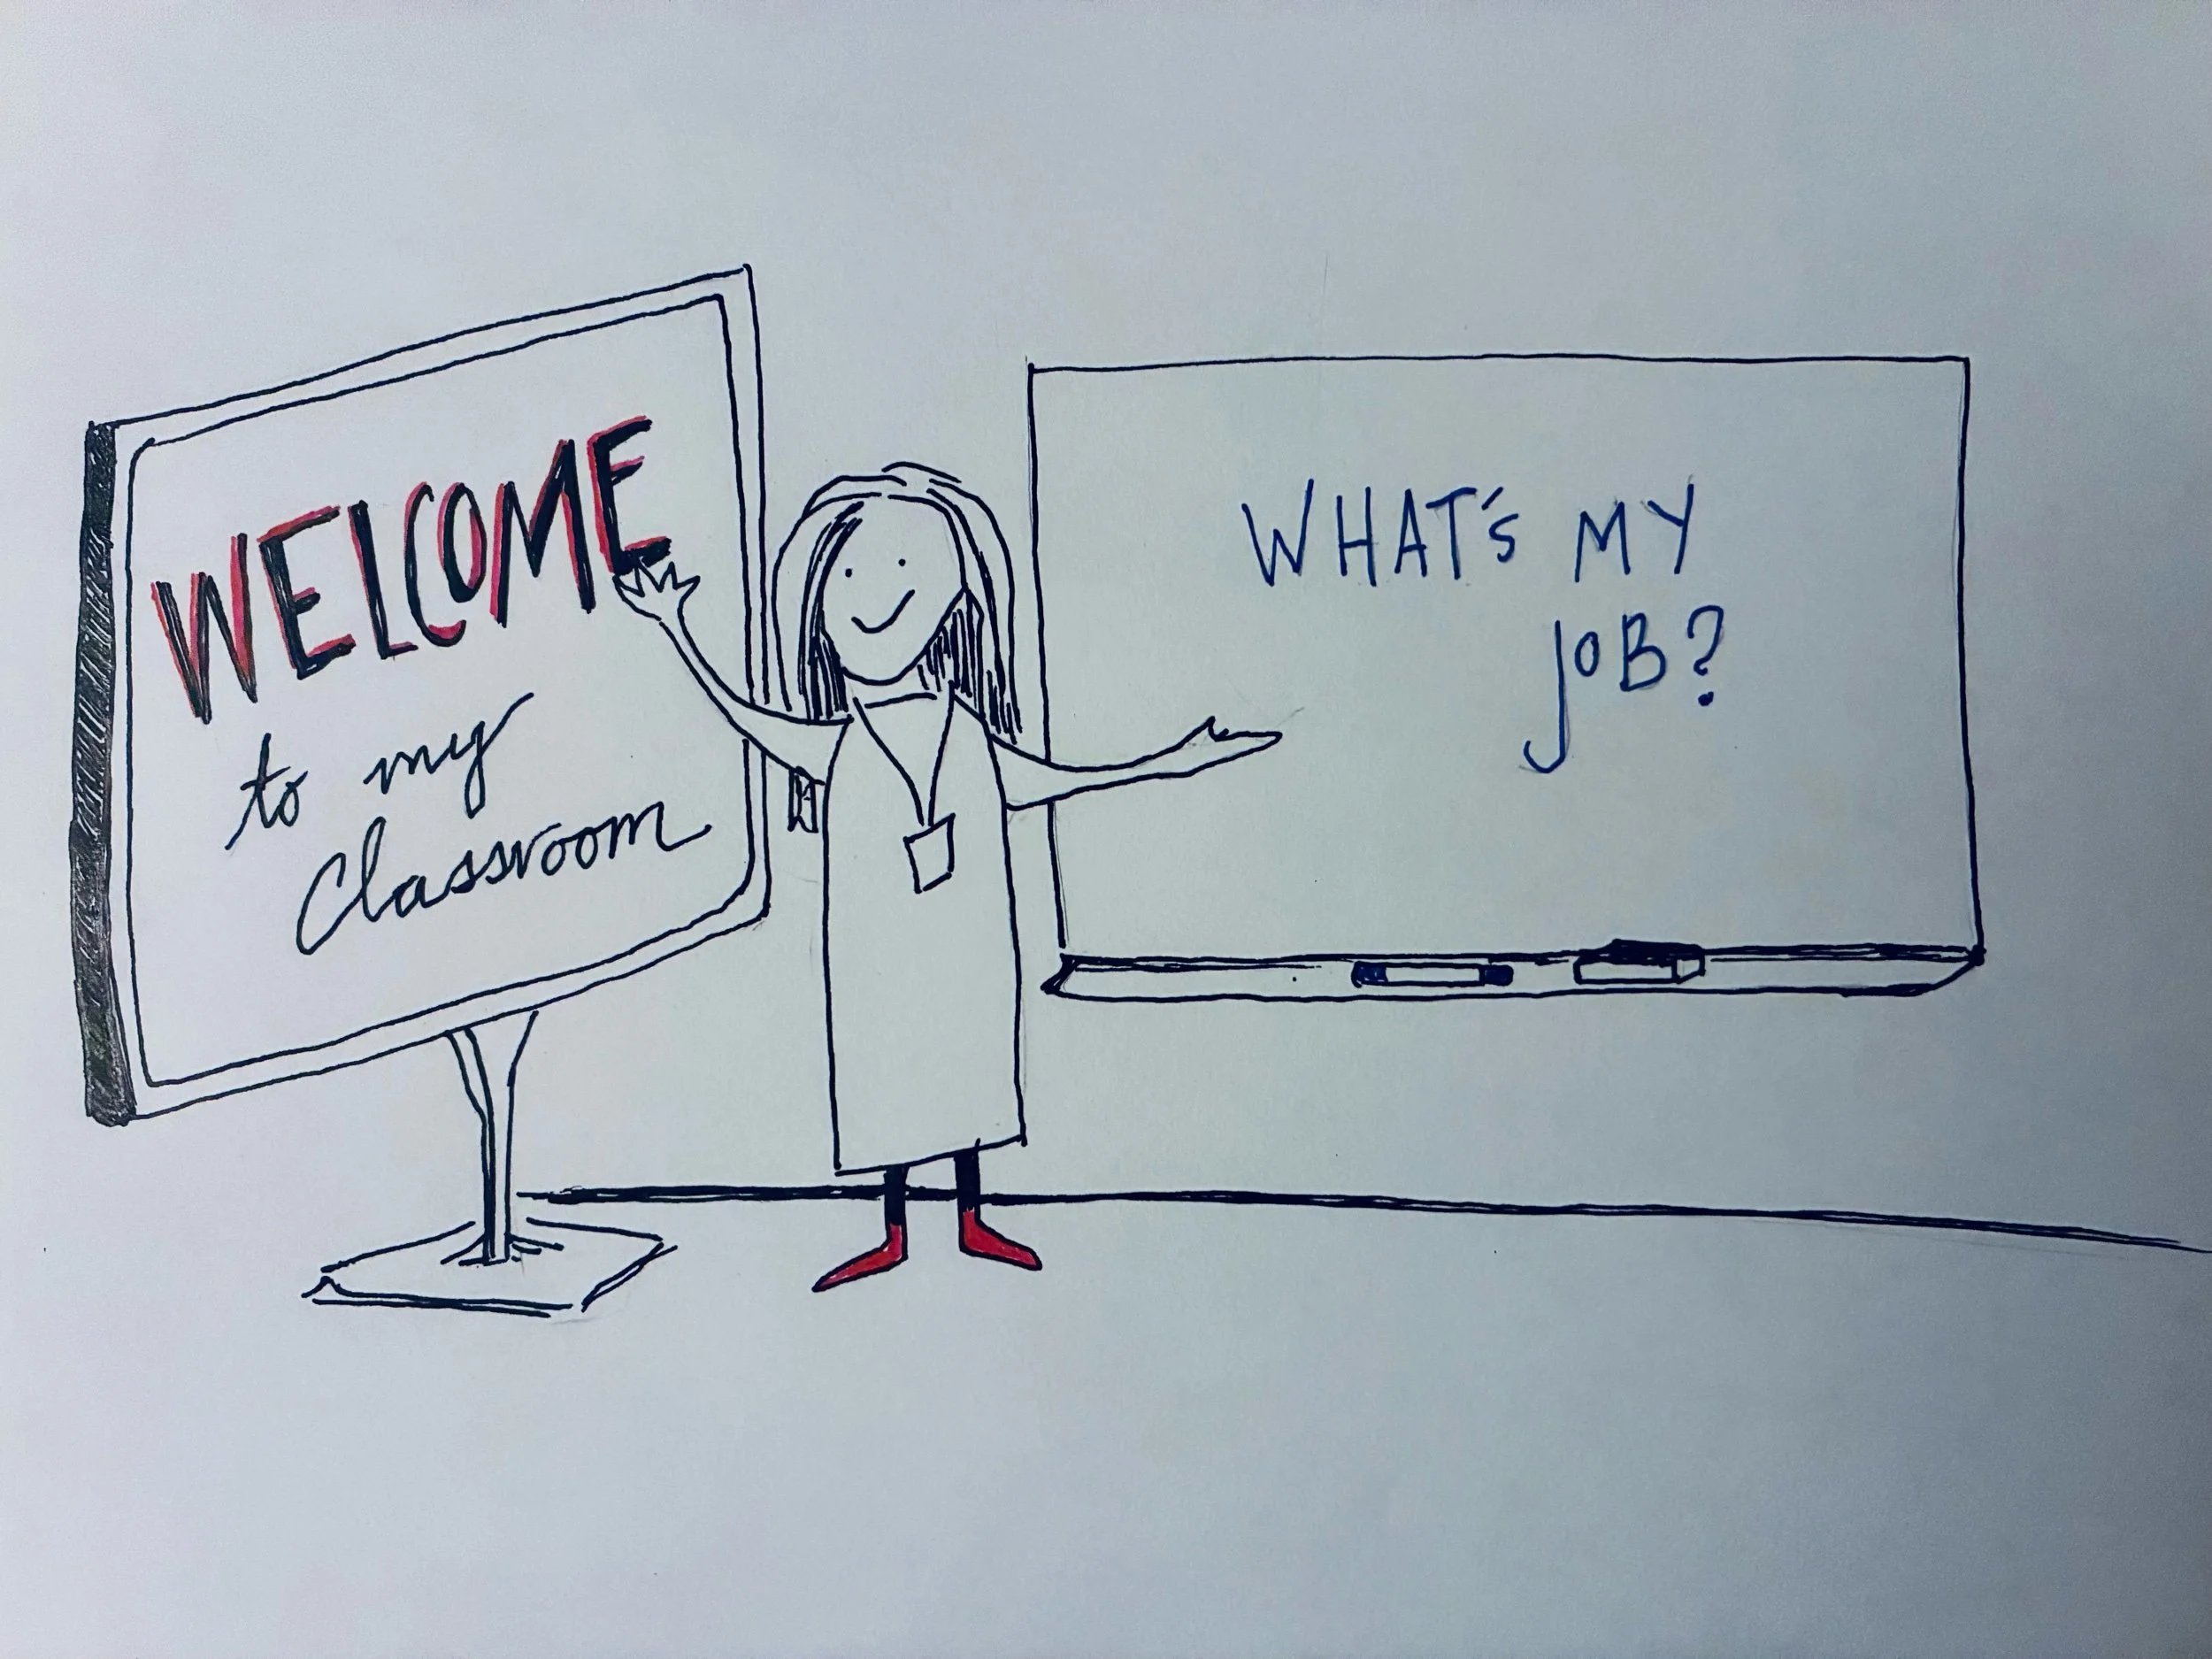 WELCOME
to my
Classroom
WHAT'S MY
JOB?